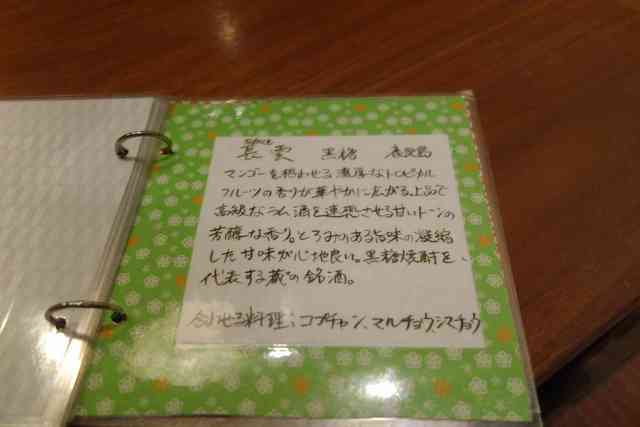 長雲 黒糖 鹿児島
マンゴーを思わせる濃厚なトロピカル
フルーツの香りが華やかに広がる。上品で
高級なラム酒を連想させる甘いトーンの
芳醇な香り。とろみのある旨味の凝縮
した甘味が心地良い。黒糖焼酎を
代表する蔵の銘酒。
合わせる料理:コプチャン、マルチョウ、シマチョウ